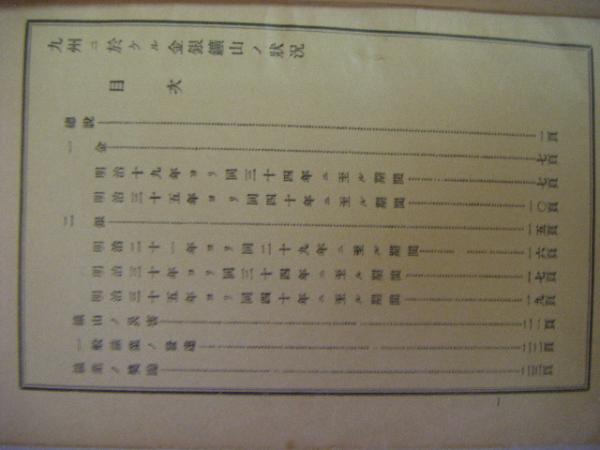 九州ニ於ケル金銀鑛山ノ狀況
目次
總說 一頁
一 金 七頁
明治十九年ヨリ同三十四年ニ至ル期間 七頁
明治三十五年ヨリ同四十年ニ至ル期間 一〇頁
二 銀 一五頁
明治二十一年ヨリ同二十九年ニ至ル期間 一六頁
明治三十年ヨリ同三十四年ニ至ル期間 一七頁
明治三十五年ヨリ同四十年ニ至ル期間 一九頁
鑛山ノ災害
一般鑛業ノ發達
鑛業ノ